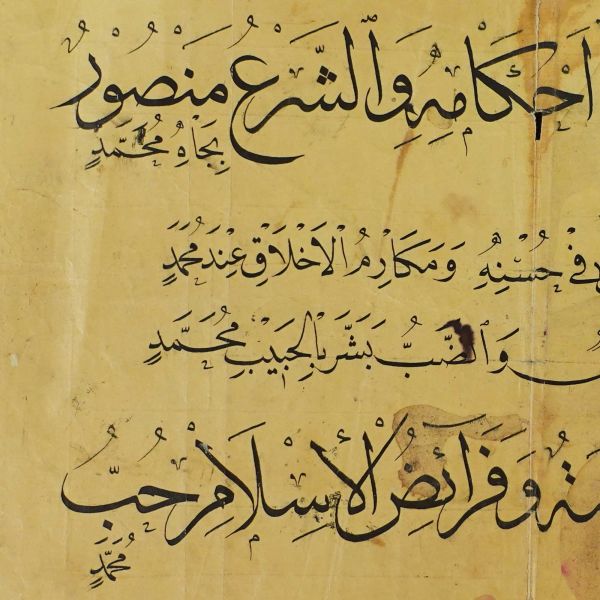 أَحْكَامِهِ وَالشَّرْعُ مَنْصُورٌ
بِجَاهِ مُحَمَّدٍ
فِي حُسْنِهِ وَمَكَارِمُ الْأَخْلَاقِ عِنْدَ مُحَمَّدٍ
وَالضَّبُّ بَشَّرَ بِالْحَبِيبِ مُحَمَّدٍ
وَفَرَائِضُ الْأِسْلَامِ حُبُّ
مُحَمَّدٍ